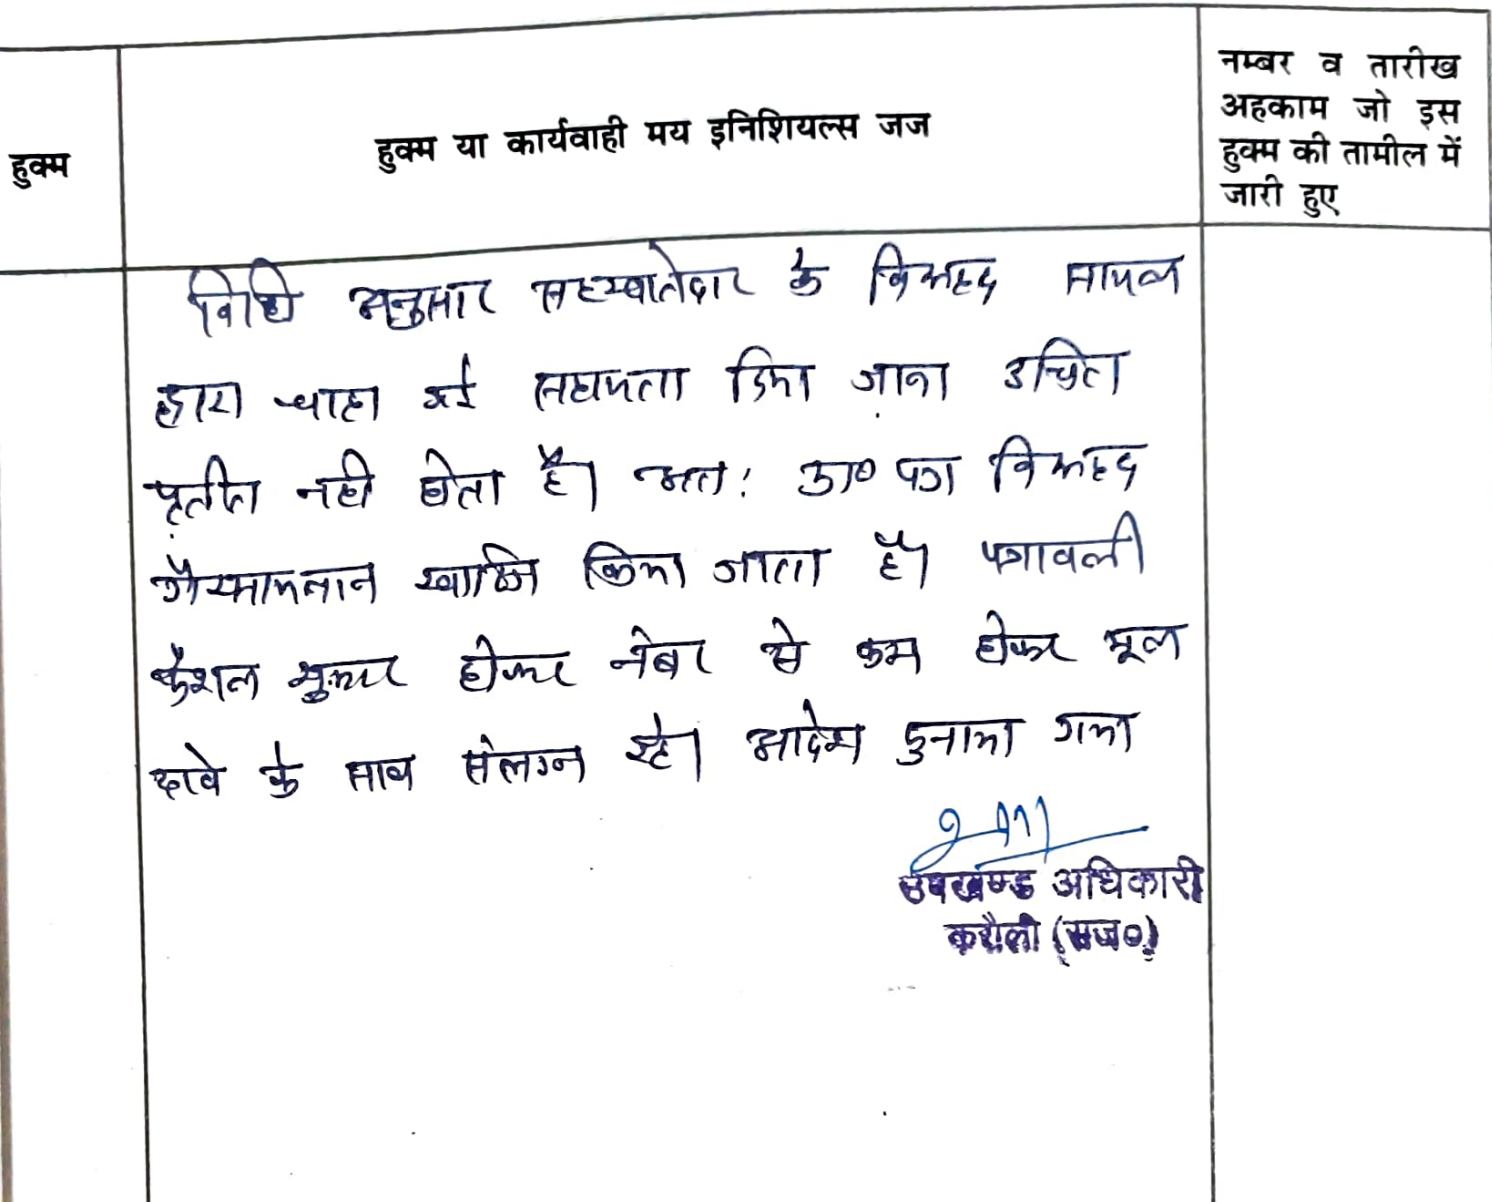 हुक्म
हुक्म या कार्यवाही मय इनिशियल्स जज
नम्बर व तारीख
अहकाम जो इस
हुक्म की तामील में
जारी हुए
विधि अनुसार सहखातेदार के विरूद्ध सायल
द्वारा चाही गई सहायता दिया जाना उचित
प्रतीत नही होता है। अतः प्रा० पत्र विरूद्ध
गैरसायलान खारिज किया जाता है। पत्रावली
फैशल शुमार होकर नंबर से कम होकर मूल
दावे के साथ संलग्न रहे। आदेश सुनाया गया
उपखण्ड अधिकारी
(राज०)